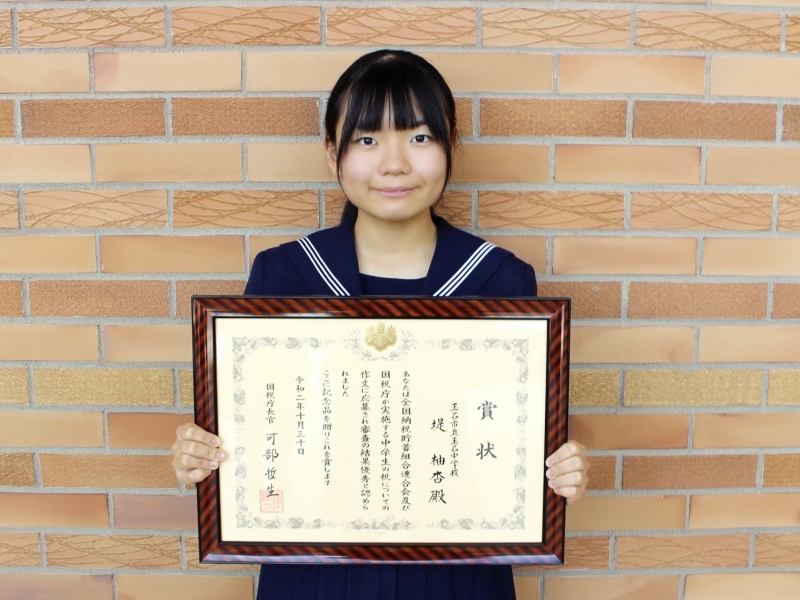 賞状
玉名市立玉名中学校
堤 柚杏殿
あなたは全国納税貯蓄組合連合会及び
国税庁が実施する中学生の税についての
作文に応募され審査の結果優秀と認めら
れました
ここに記念品を贈りこれを賞します
令和二年十月三十日
国税庁長官 可部哲生